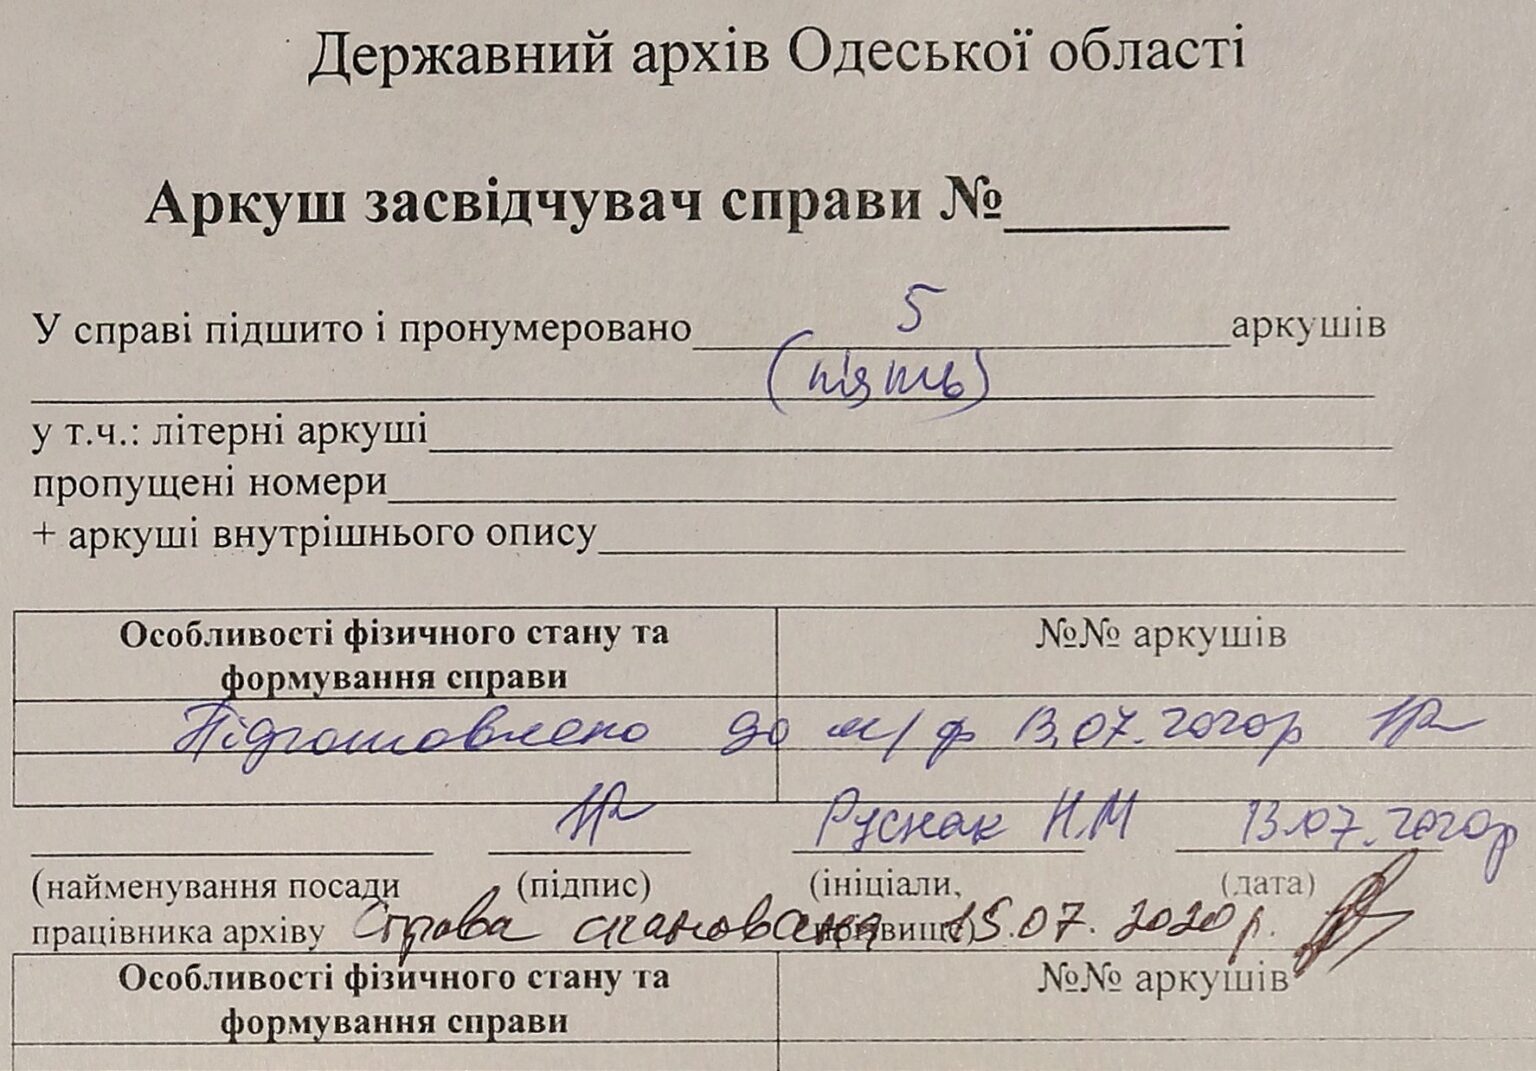 Державний архів Одеської області
Аркуш засвідчувач справи №______
У справі підшито і пронумеровано 5 аркушів
(пять)
у т.ч.: літерні аркуші
пропущені номери
+ аркуші внутрішнього опису
Особливості фізичного стану та формування справи №№ аркушів
Підготовлено до м/ф 13.07.2020р
Руснак Н.М 13.07.2020р
(найменування посади (підпис) (ініціали, (дата)
працівника архіву прізвище)
Справа сканована 15.07.2020р.
Особливості фізичного стану та формування справи №№ аркушів